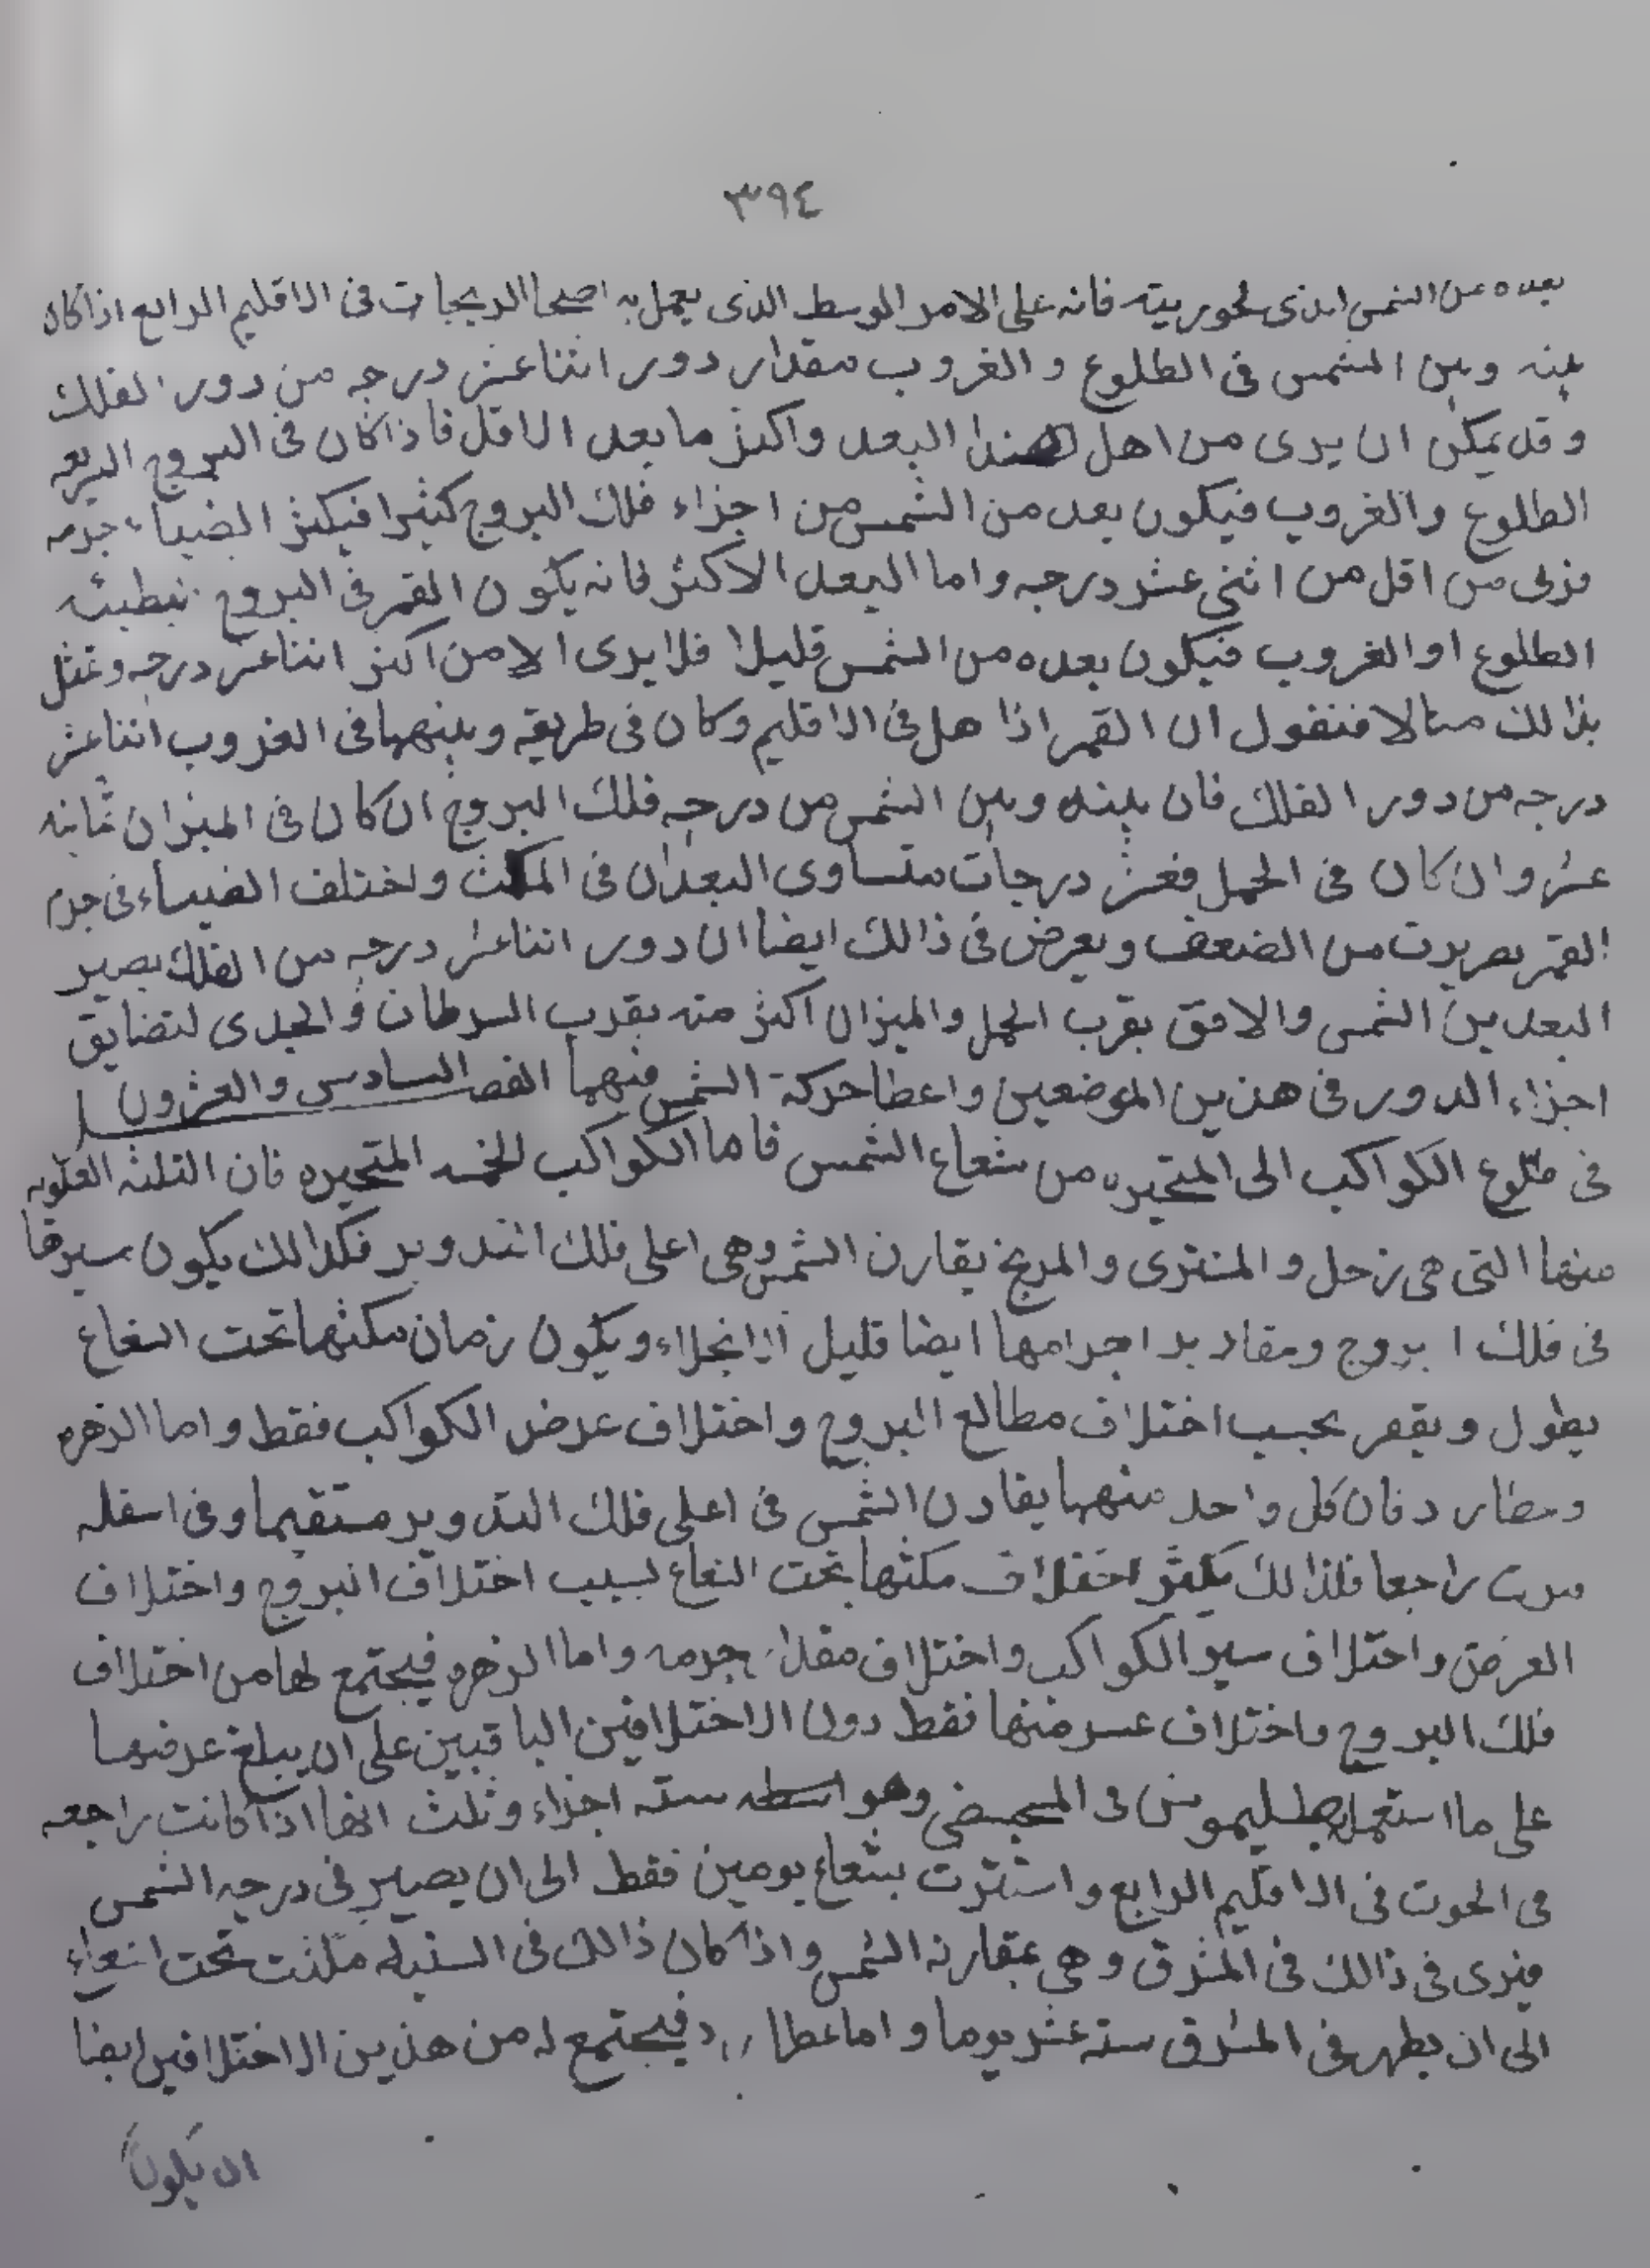 ٣٩٤
بعده من الشمس الذى لحوريته فانه على الامر الوسط الذى يعمل به اصحا الزيجات فى الاقليم الرابع اذا كان
بينه وبين الشمس فى الطلوع والغروب مقدار دور اثناعشر درجه من دور الفلك
وقد يمكن ان يرى من اهل هذا البعد واكثر ما بعد الاقل فاذا كان فى البروج السريعه
الطلوع والغروب فيكون بعده من الشمس من اجزاء فلك البروج كثيرا فيكثر الضياء جرمه
فرى من اقل من اثنى عشر درجه واما البعد الاكثر فانه يكون القمر فى البروج بطيئه
الطلوع او الغروب فيكون بعده من الشمس قليلا فلا يرى الا من اكثر اثناعشر درجه وتمثل
بذالك مثالا فنقول ان القمر اذا هل فى الاقليم وكان فى طريقه وبينهما فى الغروب اثناعشر
درجه من دور الفلك فان بينه وبين الشمس من درجه فلك البروج ان كان فى الميزان ثمانيه
عشر وان كان فى الحمل فعشر درجات متساوى البعدان فى المكث واختلف الضياء فى جرم
القمر بصريرت من الضعف ويعرض فى ذالك ايضا ان دور اثناعشر درجه من الفلك يصير
البعد بين الشمس والافق بقرب الحمل والميزان اكثر منه بقرب السرطان والجدى لتضايق
اجزاء الدور فى هذين الموضعين واعطا حركة الشمس فيهما الفصل السادس والعشرون
فى طلوع الكواكب الى المتحيره من شعاع الشمس فاما الكواكب الخمسه المتحيره فان الثلثه العلويه
منها التى هى زحل والمشترى والمريخ يقارن الشمس وهى اعلى فلك التدوير فكذالك يكون سيرها
فى فلك ا بروج ومقادير اجرامها ايضا قليل الانجلاء ويكون زمان مكثها تحت الشعاع
يطول ويقصر بحسب اختلاف مطالع البروج واختلاف عرض الكواكب فقط واما الزهره
وعطارد فان كل واحد منهما يقارن الشمس فى اعلى فلك التدوير مستقيما وفى اسفله
مرت راجعا فلذالك يكثر اختلاف مكثها تحت الشعاع لسبب اختلاف البروج واختلاف
العرض واختلاف سير الكواكب واختلاف مقدار جرمه واما الزهره فيجتمع لها من اختلاف
فلك البروج واختلاف عسر منها فقط دون الاختلافين الباقيين على ان يبلغ عرضها
على ما استعمله بطليموس فى المجسطى وهو اسطه سته اجزاء وثلث انها اذا كانت راجعه
فى الحوت فى الاقليم الرابع واستترت بشعاع يومين فقط الى ان يصير فى درجه الشمس
فيرى فى ذالك فى المشرق وهى عقارنه الشمس واذا كان ذالك فى السنبله مكثت تحت الشعاع
الى ان يظهر فى المشرق سته عشر يوما واما عطارد فيجتمع له من هذين الاختلافين ايضا
ان يكون